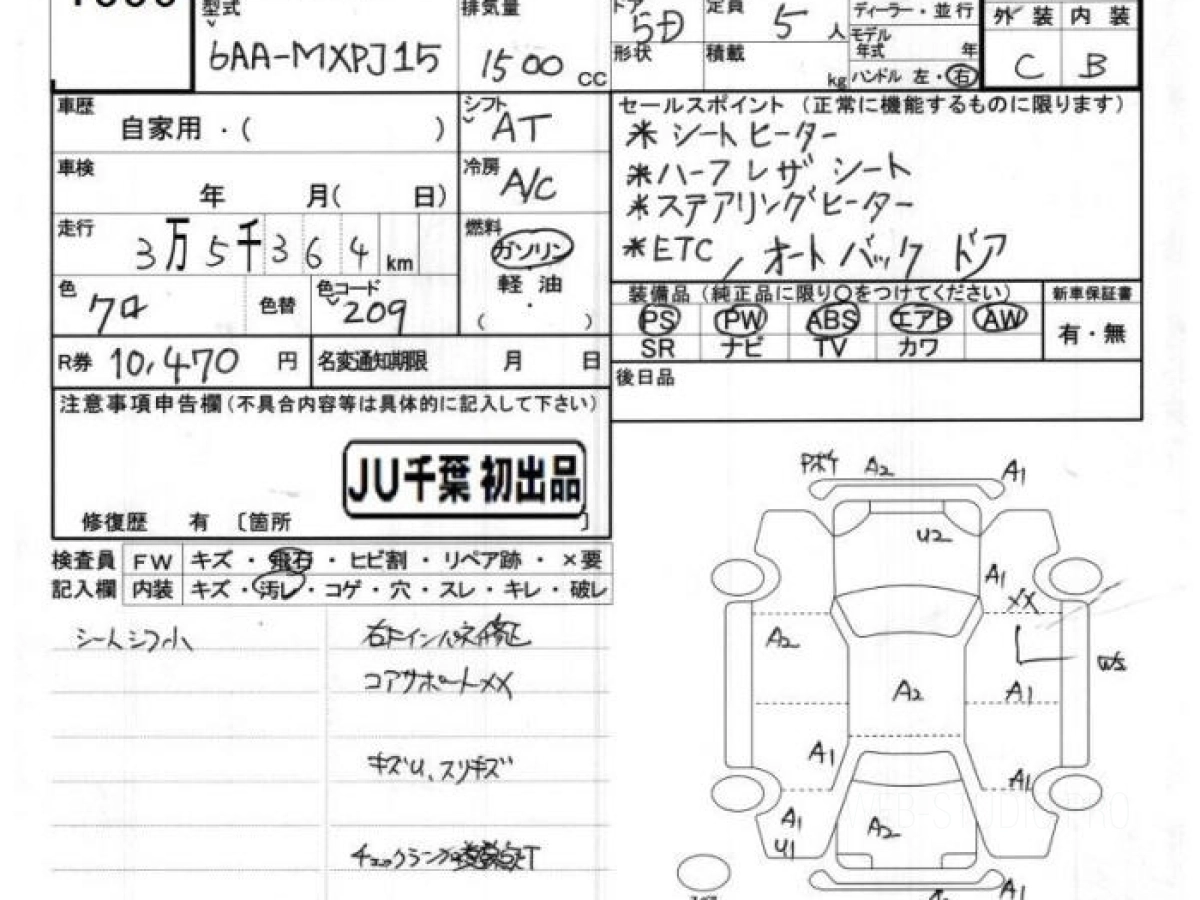 型式
6AA-MXPJ15
排気量
1500 CC
ドア
5D
形状
定員
5 人
積載
kg
ディーラー・並行
モデル
年式 年
ハンドル 左・右
外装 内装
C B
車歴
自家用・( )
シフト
AT
セールスポイント(正常に機能するものに限ります)
※シートヒーター
※ハーフレザシート
※ステアリングヒーター
※ETC, オートバックドア
車検
年 月( 日)
冷房
A/C
走行
3万5千364km
燃料
ガソリン
軽油
・
( )
色
クロ
色替
色コード
209
装備品(純正品に限り○をつけてください)
新車保証書
PS PW ABS エアB AW
SR ナビ TV カワ
有・無
R券 10,470 円
名変通知期限 月 日
後日品
注意事項申告欄(不具合内容等は具体的に記入して下さい)
JU千葉 初出品
修復歴 有 〔箇所 〕
検査員
記入欄
FW キズ・飛石・ヒビ割・リペア跡・×要
内装 キズ・汚レ・コゲ・穴・スレ・キレ・破レ
シートシワ小
コアサポートXX
キズU、スリキズ
チェックランプ
Pボケ A2 A1
U2
A1
XX
A2
W2
A2
A1
A1
A1
A1
U1
A2
A1